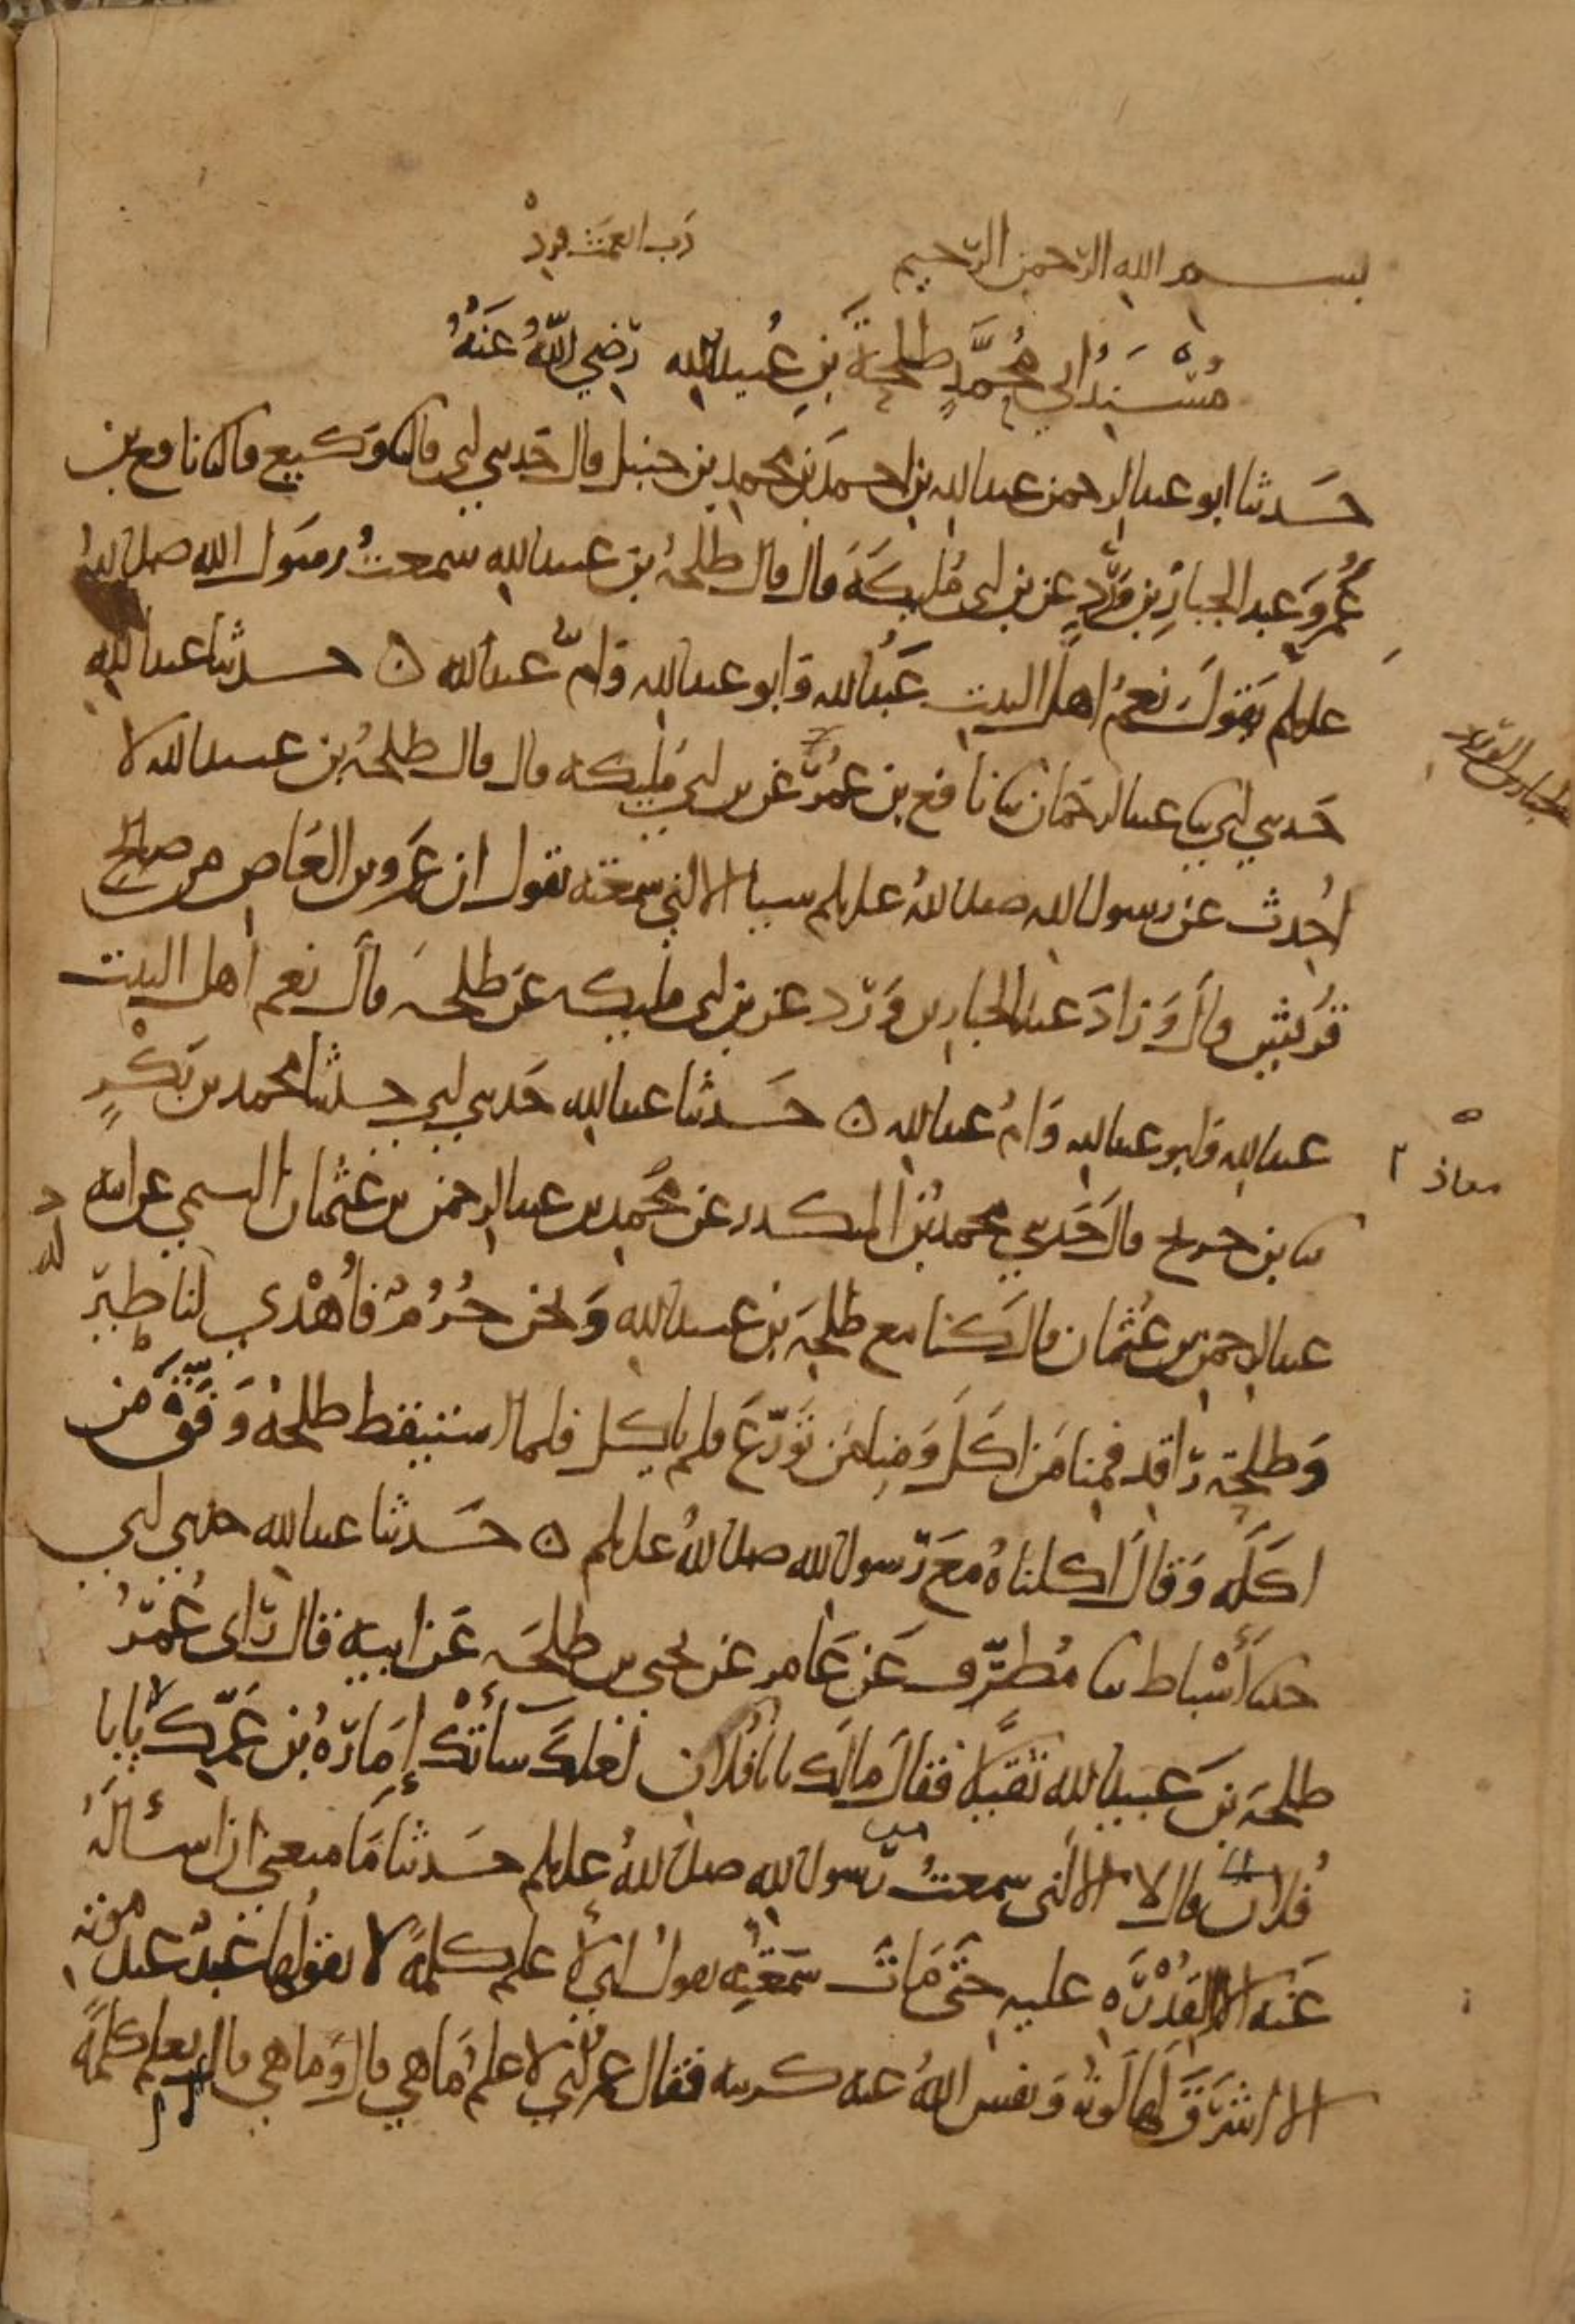 بسم الله الرحمن الرحيم رب العمت فزد
مُسْنَدُ ابي مُحمَّدٍ طلحةَ بنِ عُبيدالله رضي اللهُ عَنهُ
حَدثنا ابو عبدالرحمن عبدالله بن احمدَ بن محمد بن حنبل قال حَدثني ابي قال ثنا وَكيع قال ثنا نافع بن
عُمرَ وَعبد الجبارِ بن وَرْدٍ عن بن ابي مُليكَةَ قال قال طلحةُ بن عبيدالله سمعتُ رسَول الله صلى اللهُ
عليه وسلم يَقولُ نعمُ اهلُ البيت عَبدُالله وَابو عبدالله وَامُّ عبدالله ○ حدثنا عبدالله
حَدثني ابي ثنا عبدالرحمان ثنا نافع بن عُمرَ عَن بن ابي مُليكه قال قال طلحةُ بن عبيدالله لا
احُدث عن رسول الله صلى اللهُ عليه وسلم شيا الا اني سمعته يقول ان عَمرو بن العَاص من صالح
قُريش قالَ وَزادَ عبدالجبار بن وَرْد عن بن ابي مليكه عَن طلحه قالَ نعم اهل البيت
عبدالله وابو عبدالله وَامُ عبدالله ○ حَدثنا عبدالله حَدثني ابي حدثنا محمد بن بَكْرٍ
ثنا بن جريج قال حَدثني محمدُ بْن المنكدر عن مُحمد بن عبدالرحمن بن عُثمان التيمي عن ابيه
عبدالرحمن بن عُثمان قالَ كنا مع طلحَةَ بن عبيدالله وَنحن حُرُمٌ فأُهْدي لنا طيرٌ
وَطلحَة رَاقد فمنا مَن اكَلَ وَمنا مَن تَوَرَّعَ فلم ياكل فلما استيقظ طلحةُ وَفَّقَ مَن
اكَلَه وَقالَ اكلناهُ معَ رَسول الله صلى اللهُ عليه وسلم ○ حَدثنا عبدالله حدثني ابي
حدثنا أَسْباط ثنا مُطرَّف عَن عَامر عَن يحيى بن طلحَه عَن ابيه قال رَاى عُمَرُ
طلحَة بنَ عبيدالله ثقيلا فقالَ مالَك يابا فُلان لعلكَ سأتْكَ إمَارَةُ بْن عَمِّك يابا
فُلان قال لا الا اني سمعتُ من رَسول الله صلى اللهُ عليه وسلم حَدثنا مَا منعني ان اسألَهُ
عَنه الا القُدْرَه عليه حتى مَاتَ سَمعْتُه يقولُ اني لأعلم كلمةً لا يقولُها عبدٌ عند موته
الا اشرَقَ لها لَونه وَنفس اللهُ عنه كربته فقال عمر اني لاعلمُ مَاهي قال وَما هي قال تعلم كلمةً
معاذ